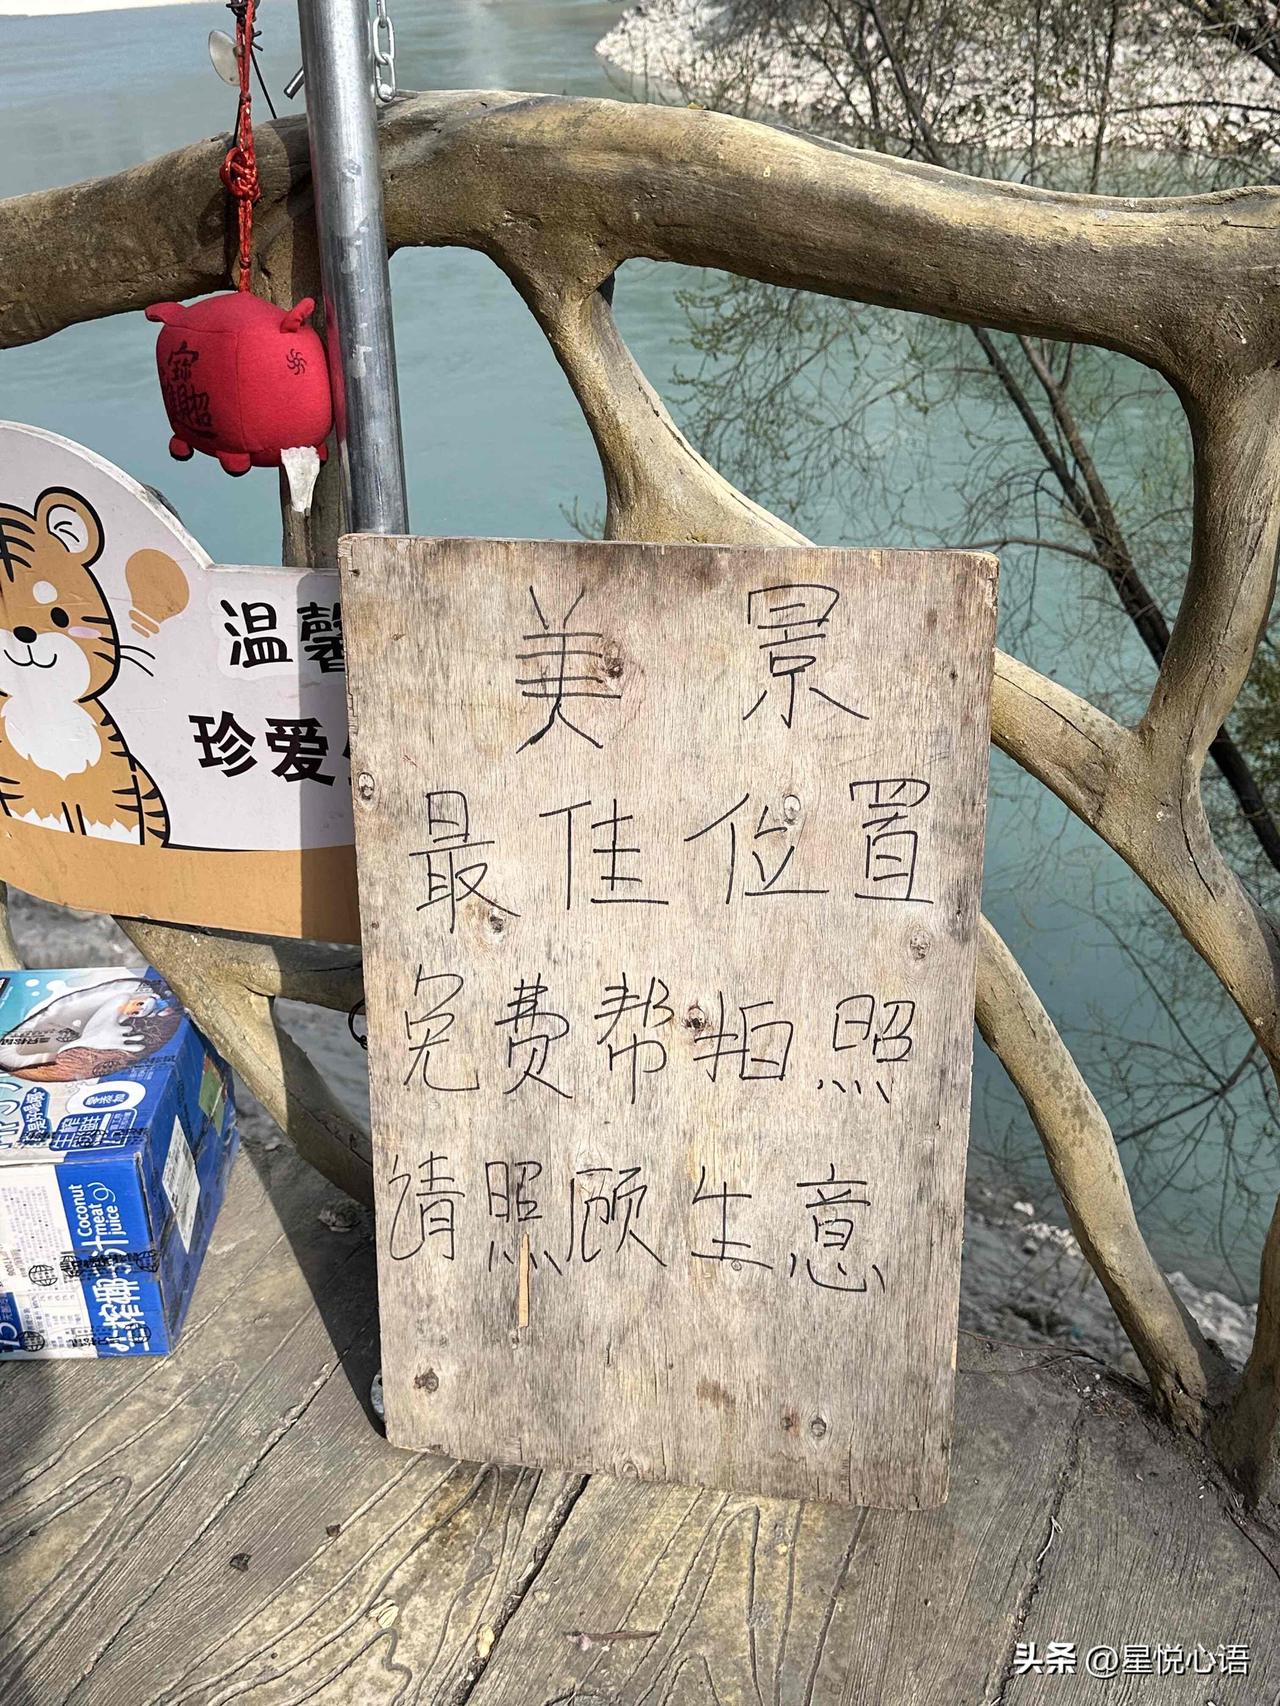 美景
最佳位置
免费帮拍照
请照顾生意
温馨
珍爱
招财
Coconut
meat
juice
生榨椰汁
头条 @星悦心语